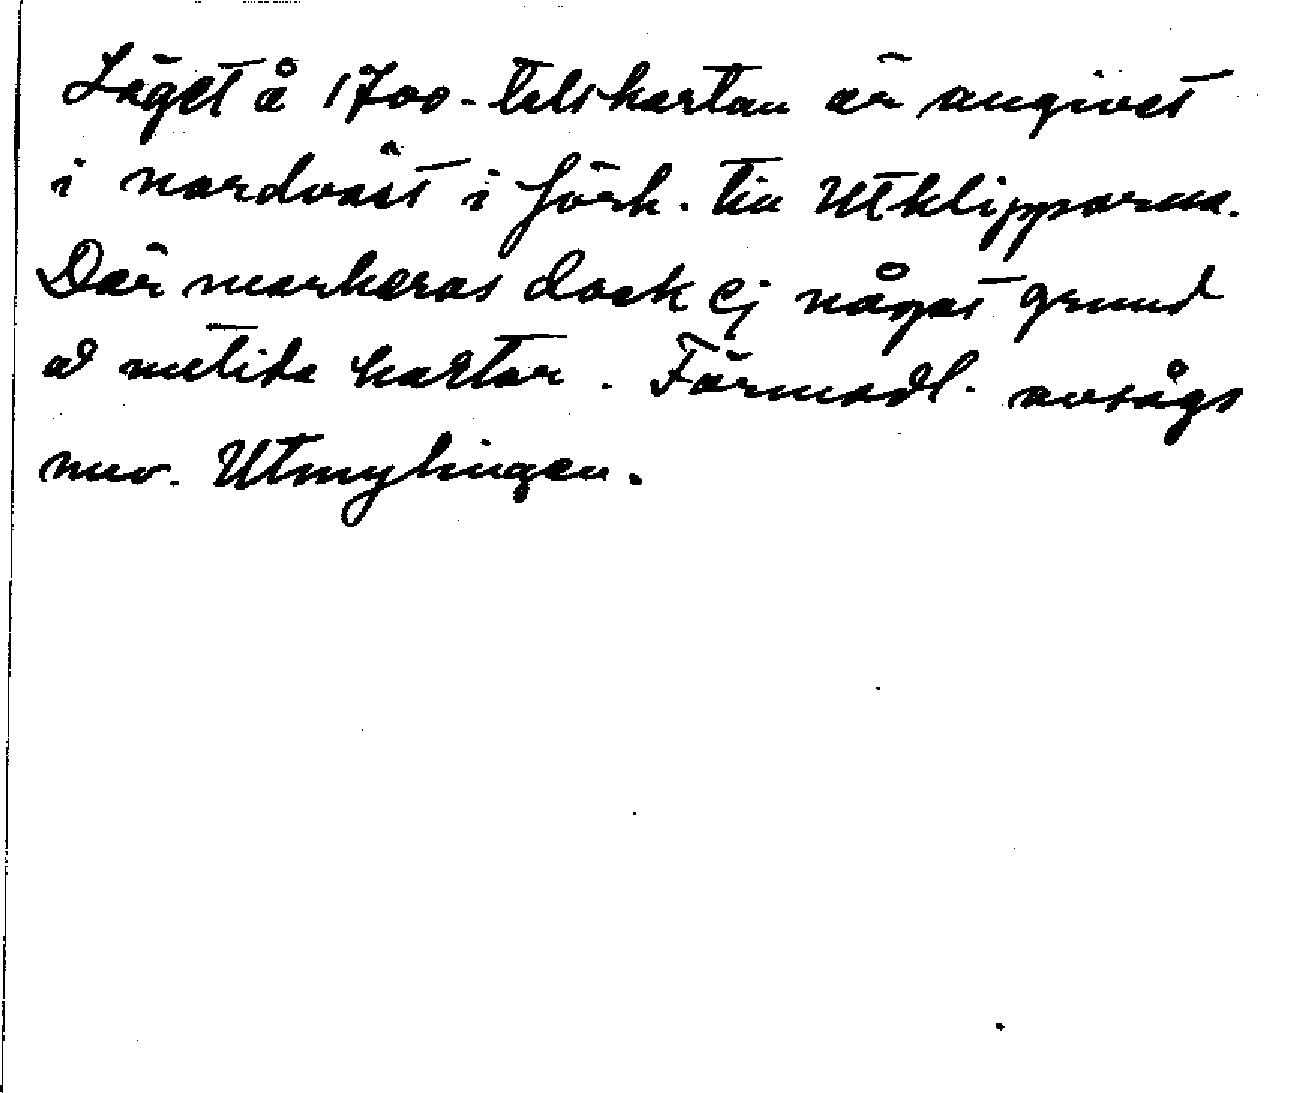 Läget å 1700-talskartan är angivet
i nordväst i förh. till Utklipporna.
Där markeras dock ej något grund
å nutida kartor. Förmodl. avsågs
nuv. Utmyhingen.